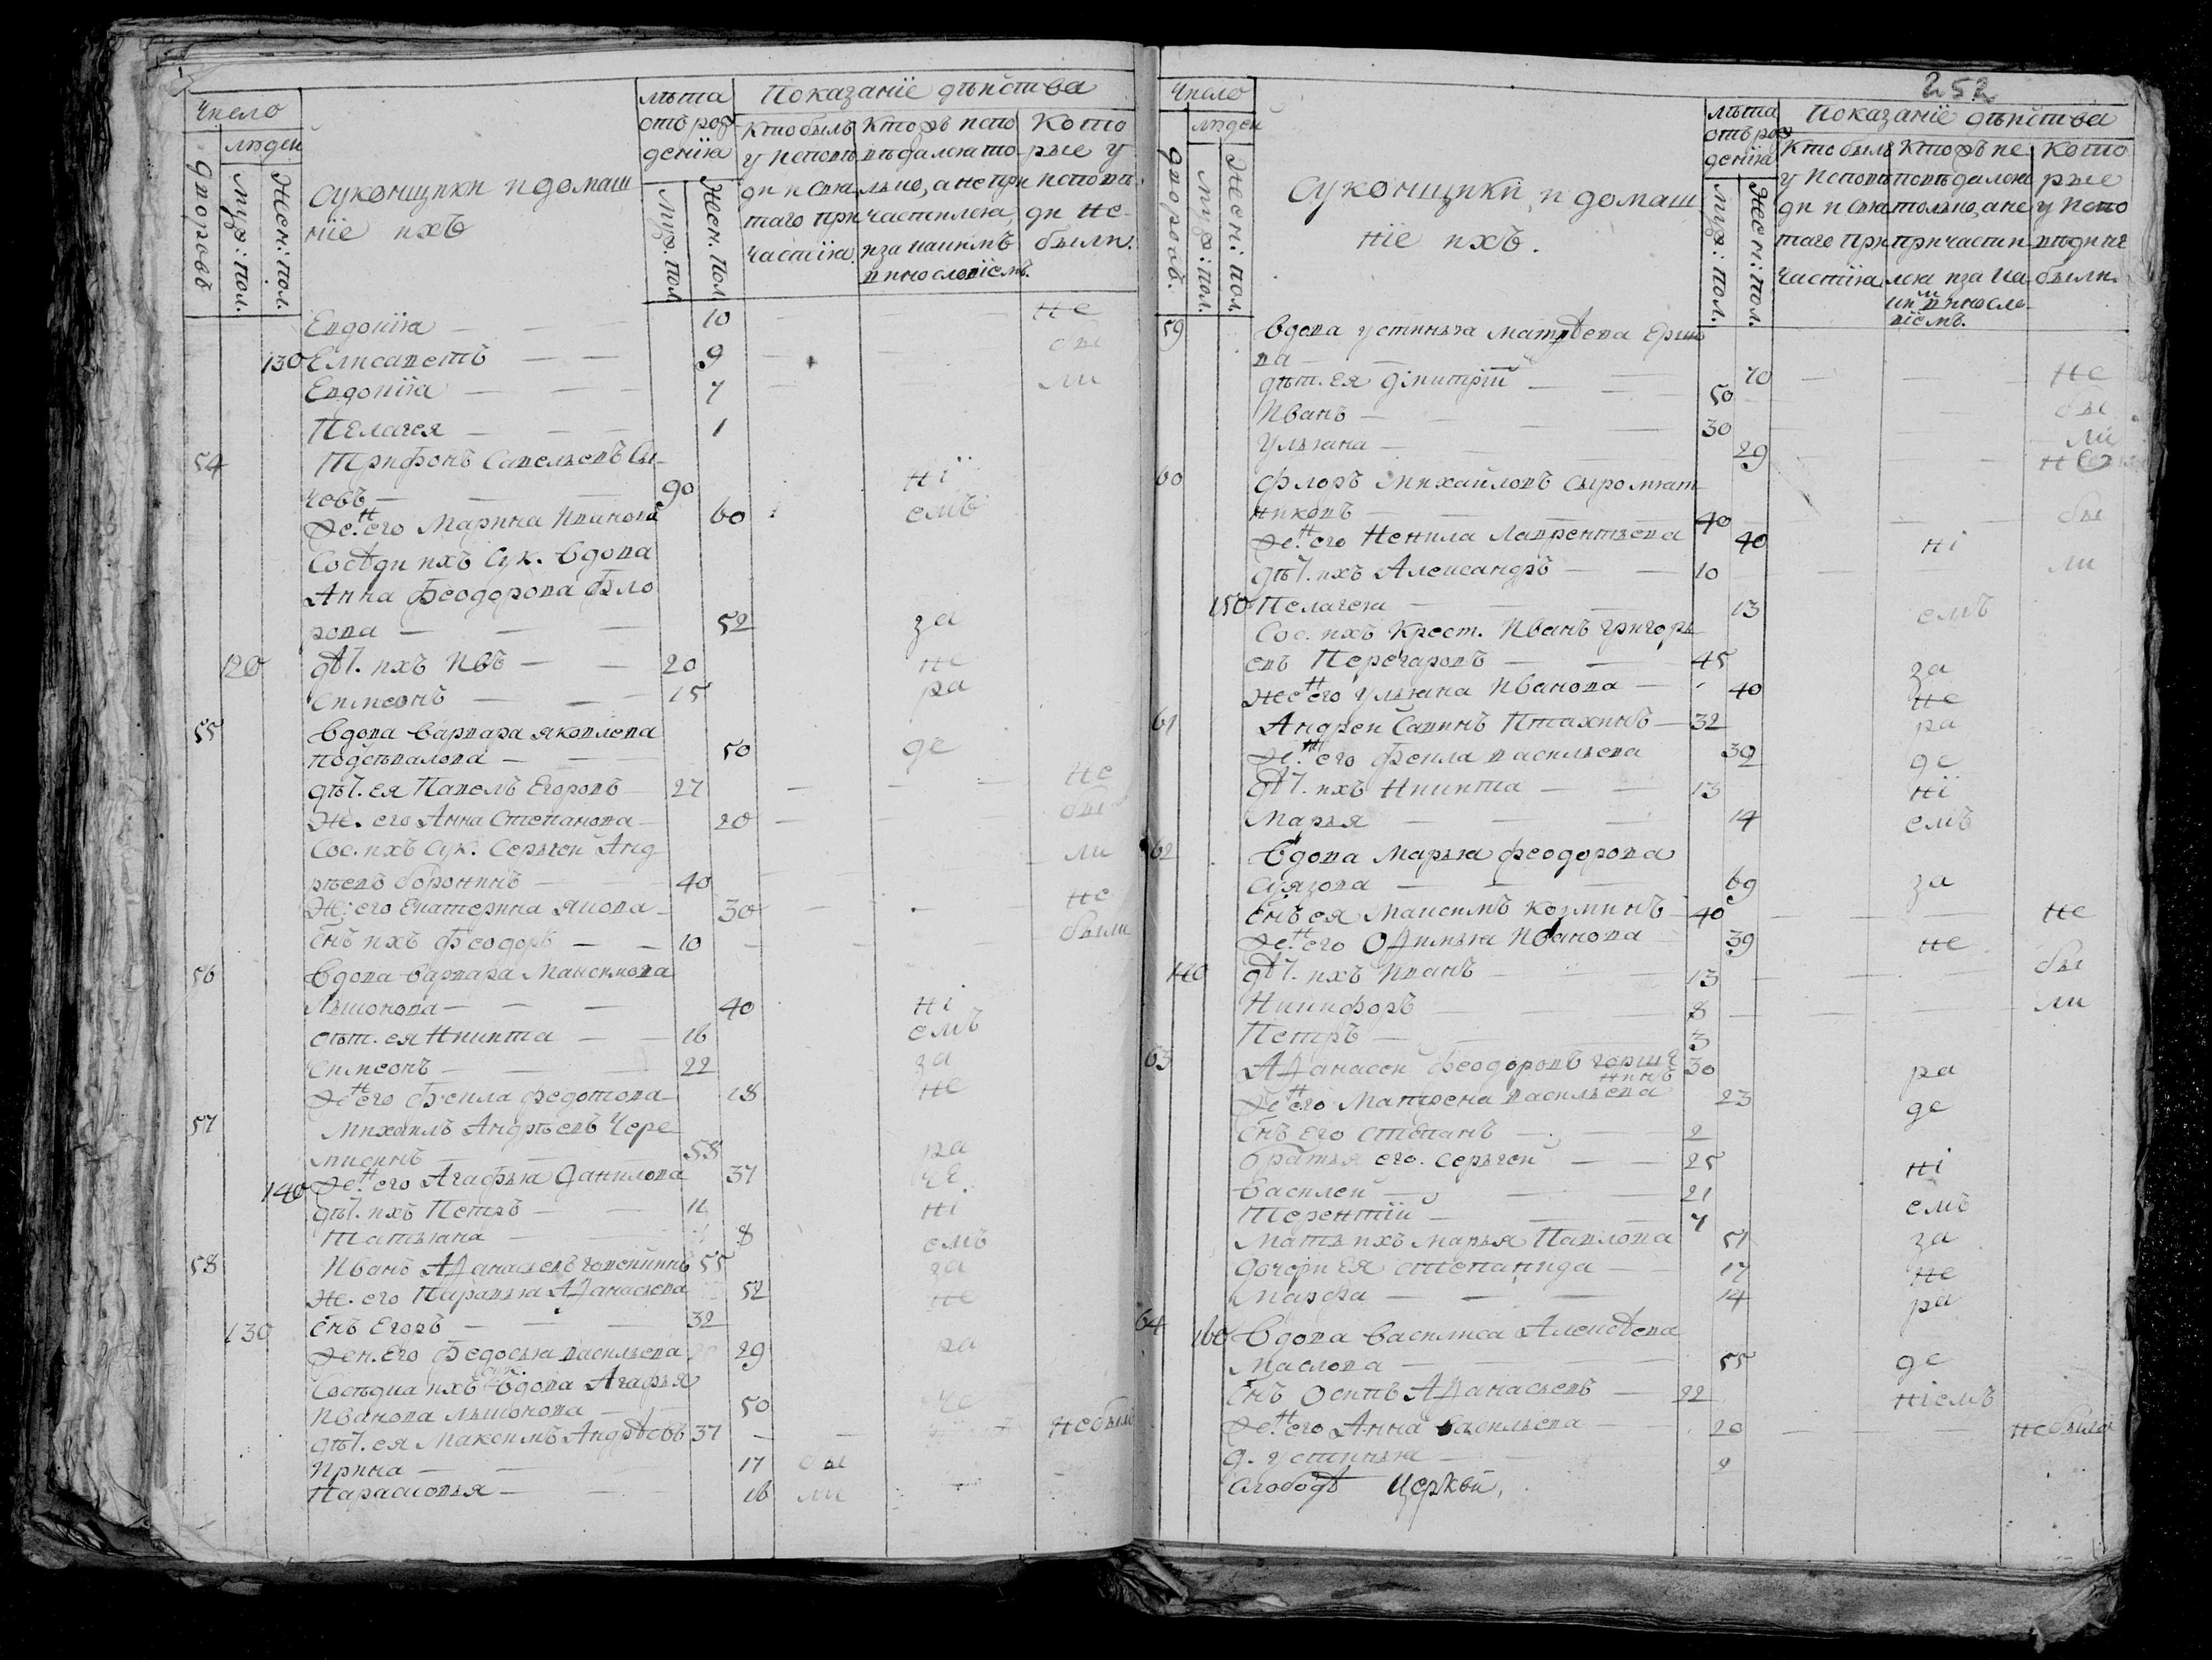 Число
людей
дворовъ
Муж: пол.
Жен: пол.
Суконщики и домаш
ніе ихъ
лѣта
отъ рож
денїя
Муж. пол
Жен. пол
Показанїе дѣйства
Кто былъ
у исповѣ
ди и свя
таго при
частїя
Кто жъ испо
вѣдался то
лько, а не при
частился,
и за каким
винословїемъ.
Кото
рые у
исповѣ
ди не
были.
Евдокїя — — — 10 — — не
130 Елисаветъ — — 9 — бы
Евдокїя — — — 7 — — ли
Пелагея — — — 1
54 Трифонъ Савельевъ Сы
чевъ — — — 90 нї
Жен. его Марина Иванова 60 емъ
Сосѣди ихъ Сук. вдова
Анна Феодорова Фло
рова — — — 52 за
120 дѣт. ихъ Ивъ — — 20 не
Симеонъ — — — 15 ра
55 Вдова Варвара Яковлева
Подсѣвалова — — 50 де
дѣт. ея Павелъ Егоровъ 27 — — не
Ж. его Анна Степанова — 20 — бы
Сос. ихъ Сук. Сергей Анд
рѣевъ Воронинъ — — 40 — — ли
Ж. его Екатерина Якова — 30 — — не
Снъ ихъ Феодоръ — — 10 — — были
56 Вдова Варвара Максимова
Льконова — — — 40 нї
дѣт. ея Никита — — 16 емъ
Симеонъ — — — 22 за
Жен его Фекла Федотова 18 не
57 Михаилъ Андрѣевъ Чере
мисинъ — — 58 ра
140 Жен его Агафья Данилова 37 де
дѣт. ихъ Петръ — — 11 нї
Татьяна — — 8 емъ
58 Иванъ Аѳанасьевъ 55 за
Ж. его Парасья Аѳанасьева 52 не
130 Снъ Егоръ — — — 32
Жен. Его Федосья Васильева 29 ра
Сосѣдка ихъ сук. вдова Агафья
Иванова Льконова — — 50 де
дѣт. ея Максимъ Андрѣевъ 37 — — не были
Ирина — — 17 бы
Парасковья — — — 16 ли
252
Число
людей
дворовъ.
Муж: пол.
Жен: пол.
Суконщики, и домаш
нїе ихъ.
лѣта
отъ рож
денїя
Муж: пол.
Жен: пол.
Показанїе дѣйства
Кто былъ
у исповѣ
ди и свя
таго при
частїя.
Кто жъ ис
повѣдался
только, а не
причасти
лся и за ка
ким винослo
вїемъ.
Кото
рые
у испо
вѣди не
были.
59 Вдова Устинья Матвѣева Ерши
ва — — 70 — — не
дѣт. ея Димитрїй — — 50
Иванъ — — — 30 — бы
Ульяна — — — 29 — — ли
60 Флоръ Михайловъ Сыромят
никовъ — — — 40 — бы
Жен его Ненила Лаврентьева 40 нї
дѣт. ихъ Александръ — — 10 — ли
150 Пелагея — — — 13 емъ
Сос. ихъ Крест. Иванъ Григорь
евъ Перегаровъ — — 45 за
Жен его Ульяна Иванова — 40 не
61 Андрей Савинъ Птахинъ — 32 ра
Жен его Фекла Васильева 30 де
дѣт. ихъ Никита — — 13 нї
Марья — — — 14 емъ
62 Вдова Марья Феодорова
Суязова — — — 69 за
Снъ ея Максимъ Козминъ 40 — — не
Жен его Оѳимья Иванова 39 не
140 дѣт. ихъ Иванъ — — 13 — бы
Никифоръ — — 8 — — — ли
Петръ — — — 3
63 Аѳанасей Феодоровъ Горшеч
нинъ 30 ра
Жен его Матрена Васильева 23 де
Снъ его Степанъ — — 2
Братья его. Сергей — — 25 нї
Василей — — — 21
Терентїй — — — 7 емъ
Мать ихъ Марья Павлова 51 за
Дочери Ея Степанида — — 17 не
Марфа — — — 14 ра
64 160 Вдова Василиса Алексѣева
Маслова — — 55 де
Снъ Осипъ Аѳанасьевъ — 22 нїемъ
Жен его Анна Васильева — 20 — — — не была
д. Устинья — — 2
Слободѣ Церкви.